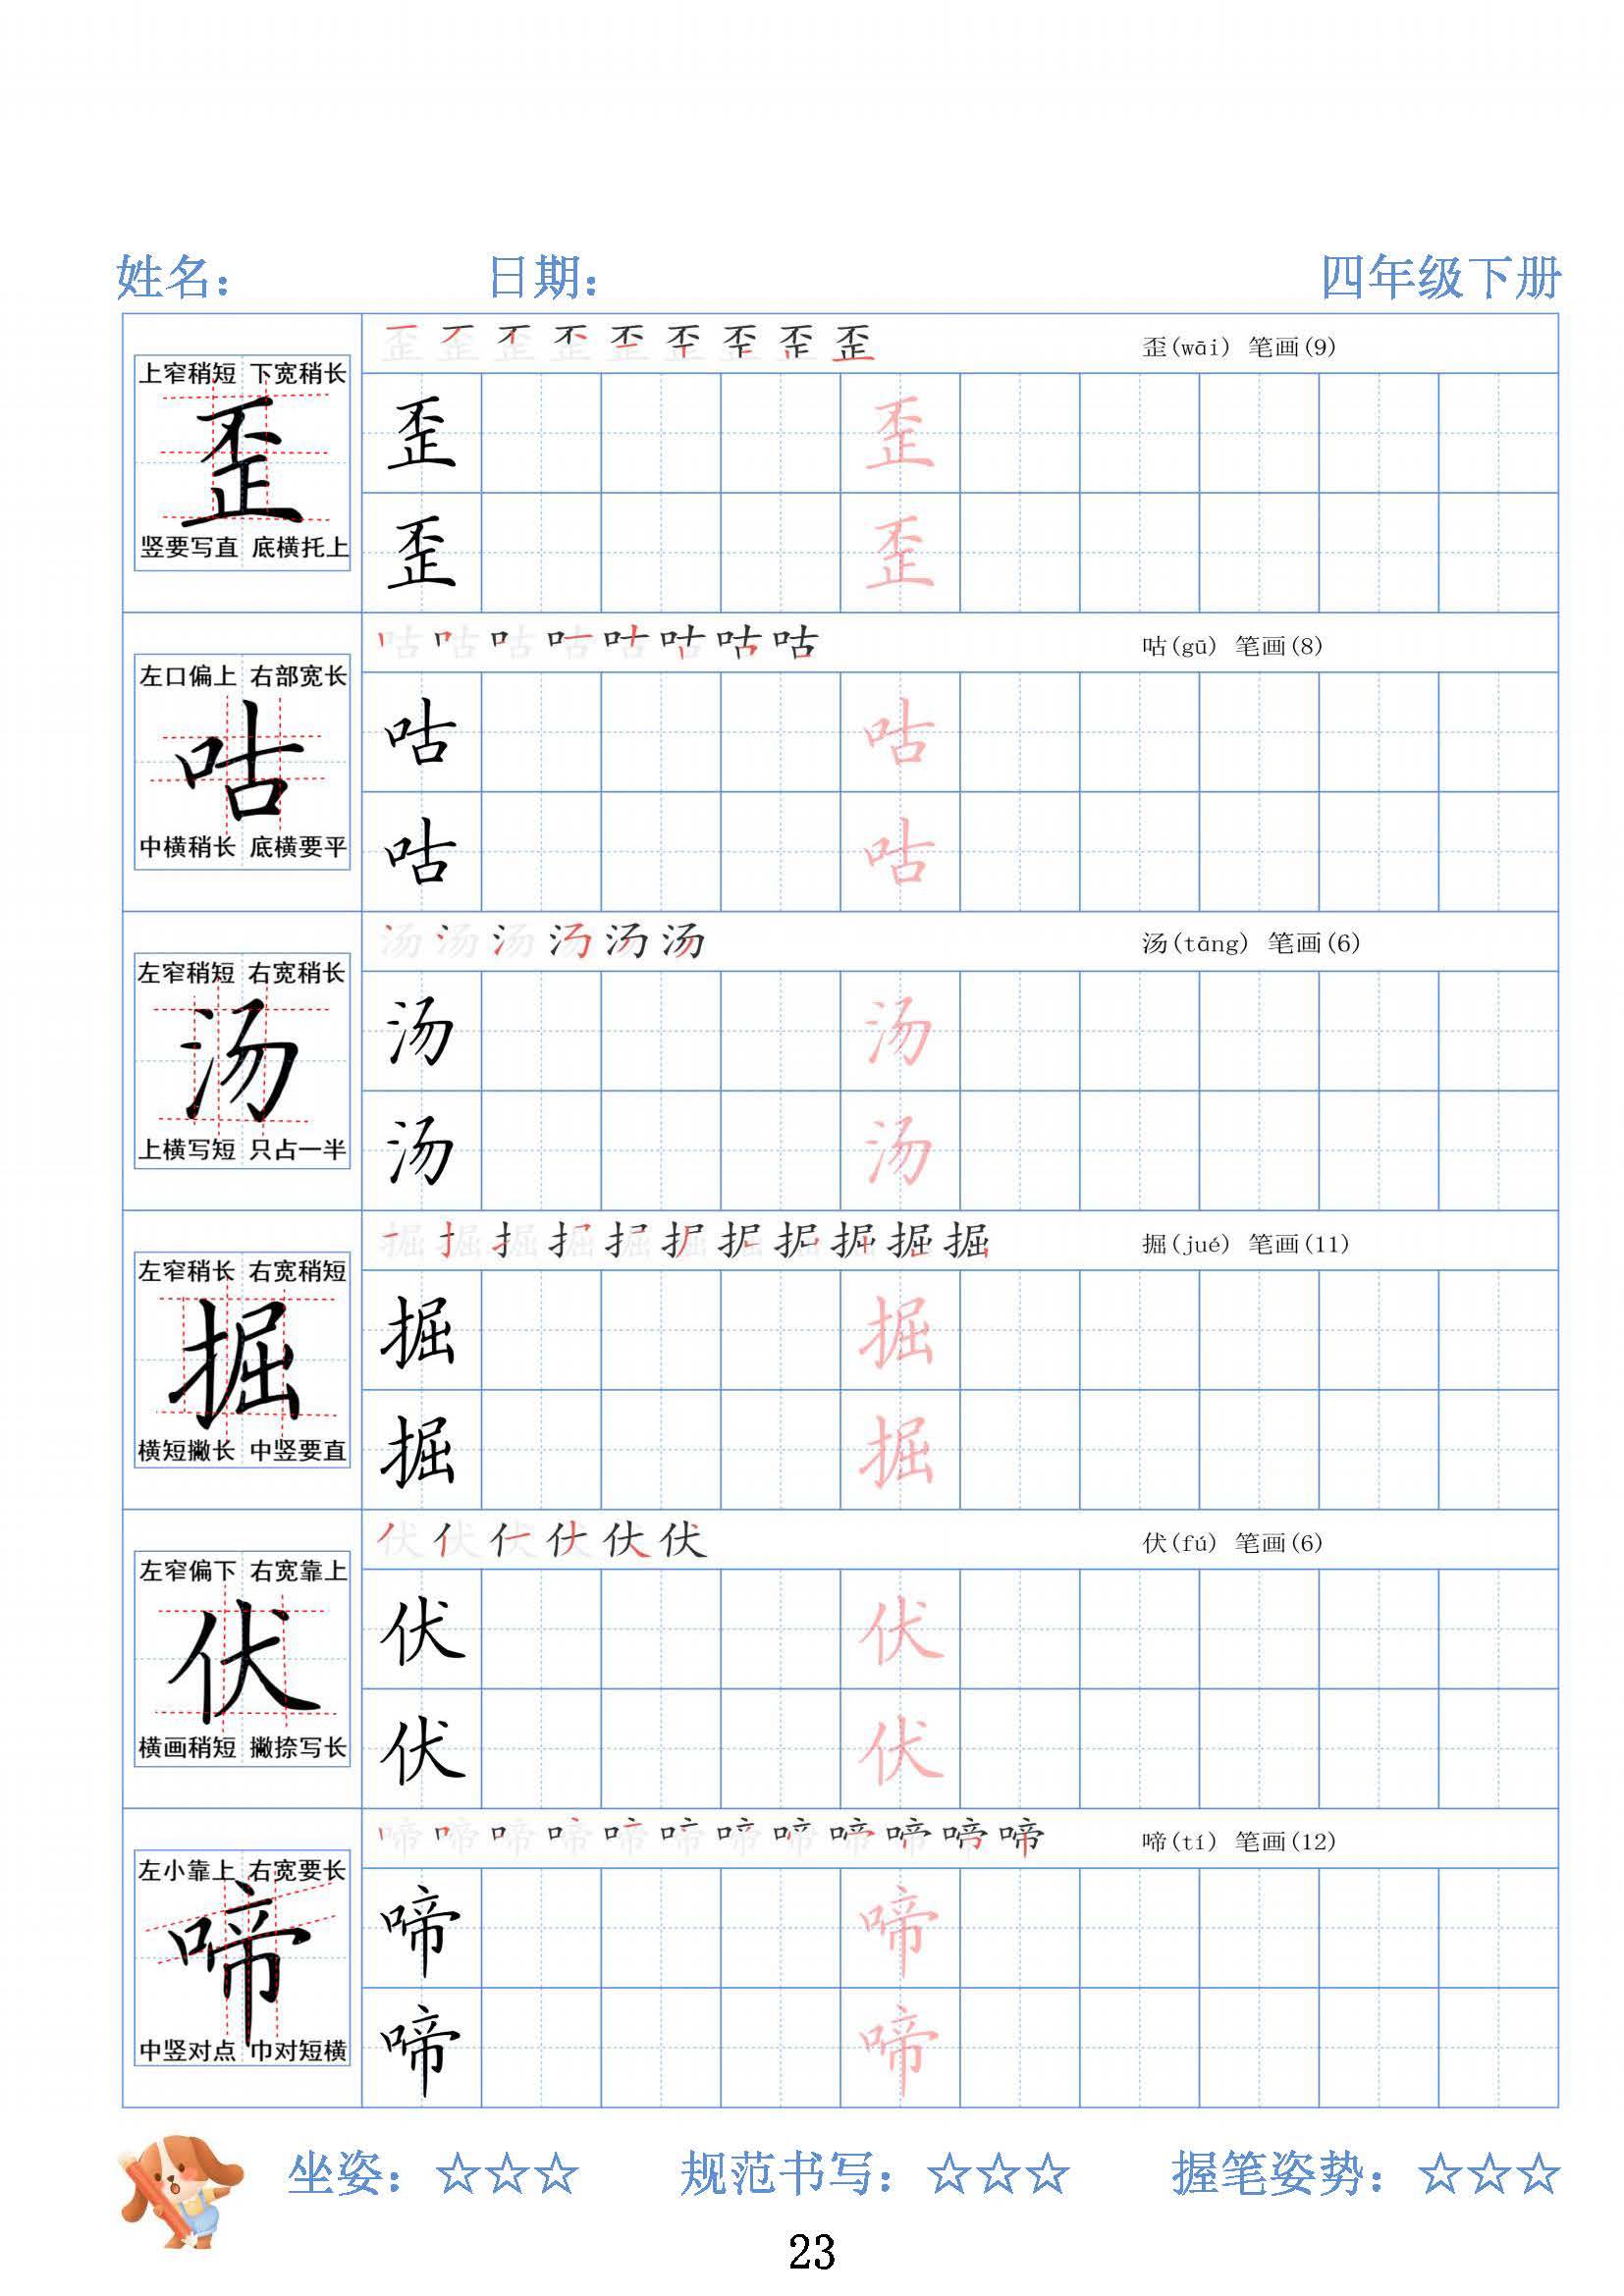 姓名： 日期： 四年级下册
歪 歪 歪 歪 歪 歪 歪 歪 歪 歪(wāi) 笔画(9)
上窄稍短 下宽稍长
歪
竖要写直 底横托上
歪 歪
歪 歪
咕 咕 咕 咕 咕 咕 咕 咕 咕(gū) 笔画(8)
左口偏上 右部宽长
咕
中横稍长 底横要平
咕 咕
咕 咕
汤 汤 汤 汤 汤 汤 汤(tāng) 笔画(6)
左窄稍短 右宽稍长
汤
上横写短 只占一半
汤 汤
汤 汤
掘 掘 掘 掘 掘 掘 掘 掘 掘 掘 掘 掘(jué) 笔画(11)
左窄稍长 右宽稍短
掘
横短撇长 中竖要直
掘 掘
掘 掘
伏 伏 伏 伏 伏 伏 伏(fú) 笔画(6)
左窄偏下 右宽靠上
伏
横画稍短 撇捺写长
伏 伏
伏 伏
啼 啼 啼 啼 啼 啼 啼 啼 啼 啼 啼 啼 啼(tí) 笔画(12)
左小靠上 右宽要长
啼
中竖对点 巾对短横
啼 啼
啼 啼
坐姿：☆☆☆ 规范书写：☆☆☆ 握笔姿势：☆☆☆
23